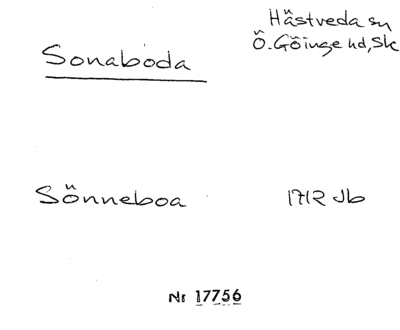 Hästveda sn
Ö. Göinge hd, Sk
Sonaboda
Sönneboa 1712 Jb
Nr 17756